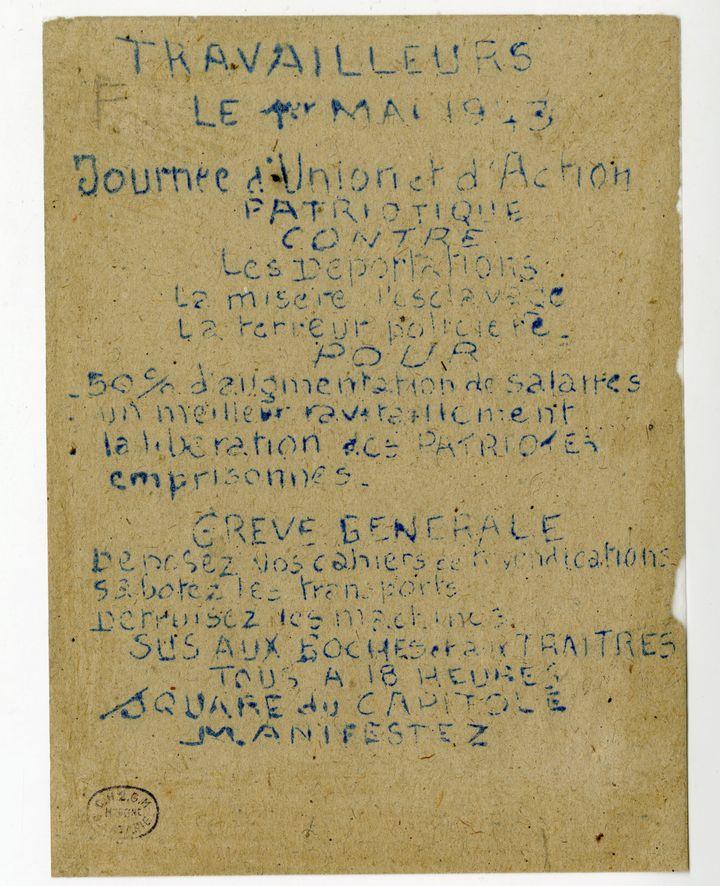 TRAVAILLEURS
F
LE 1er MAI 1943
Journée d'Union et d'Action
PATRIOTIQUE
CONTRE
Les Deportations
La misère l'esclavage
La terreur policière.
POUR
- 50% d'augmentation de salaires
un meilleur ravitaillement
la libération des PATRIOTES
emprisonnés.
GREVE GENERALE
Deposez vos cahiers de revendications
Sabotez les transports
Detruisez les machines.
SUS AUX BOCHES et aux TRAITRES
TOUS A 18 HEURES
SQUARE du CAPITOLE
MANIFESTEZ
C.H.2.G.M.